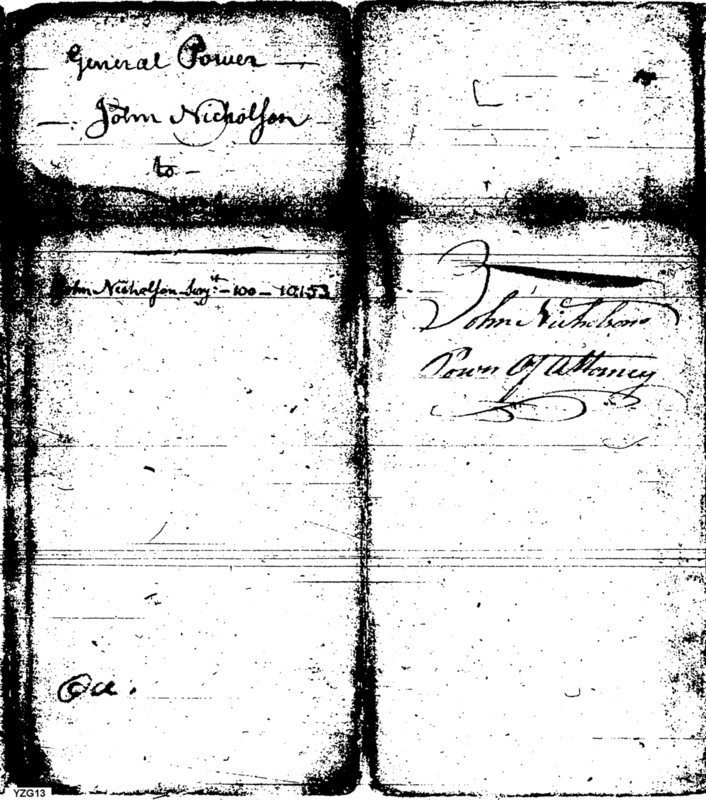 General Power
John Nicholson
to
John Nicholson Serj:t - 100 - 10153
John Nicholson
Power Of Attorney
YZG13